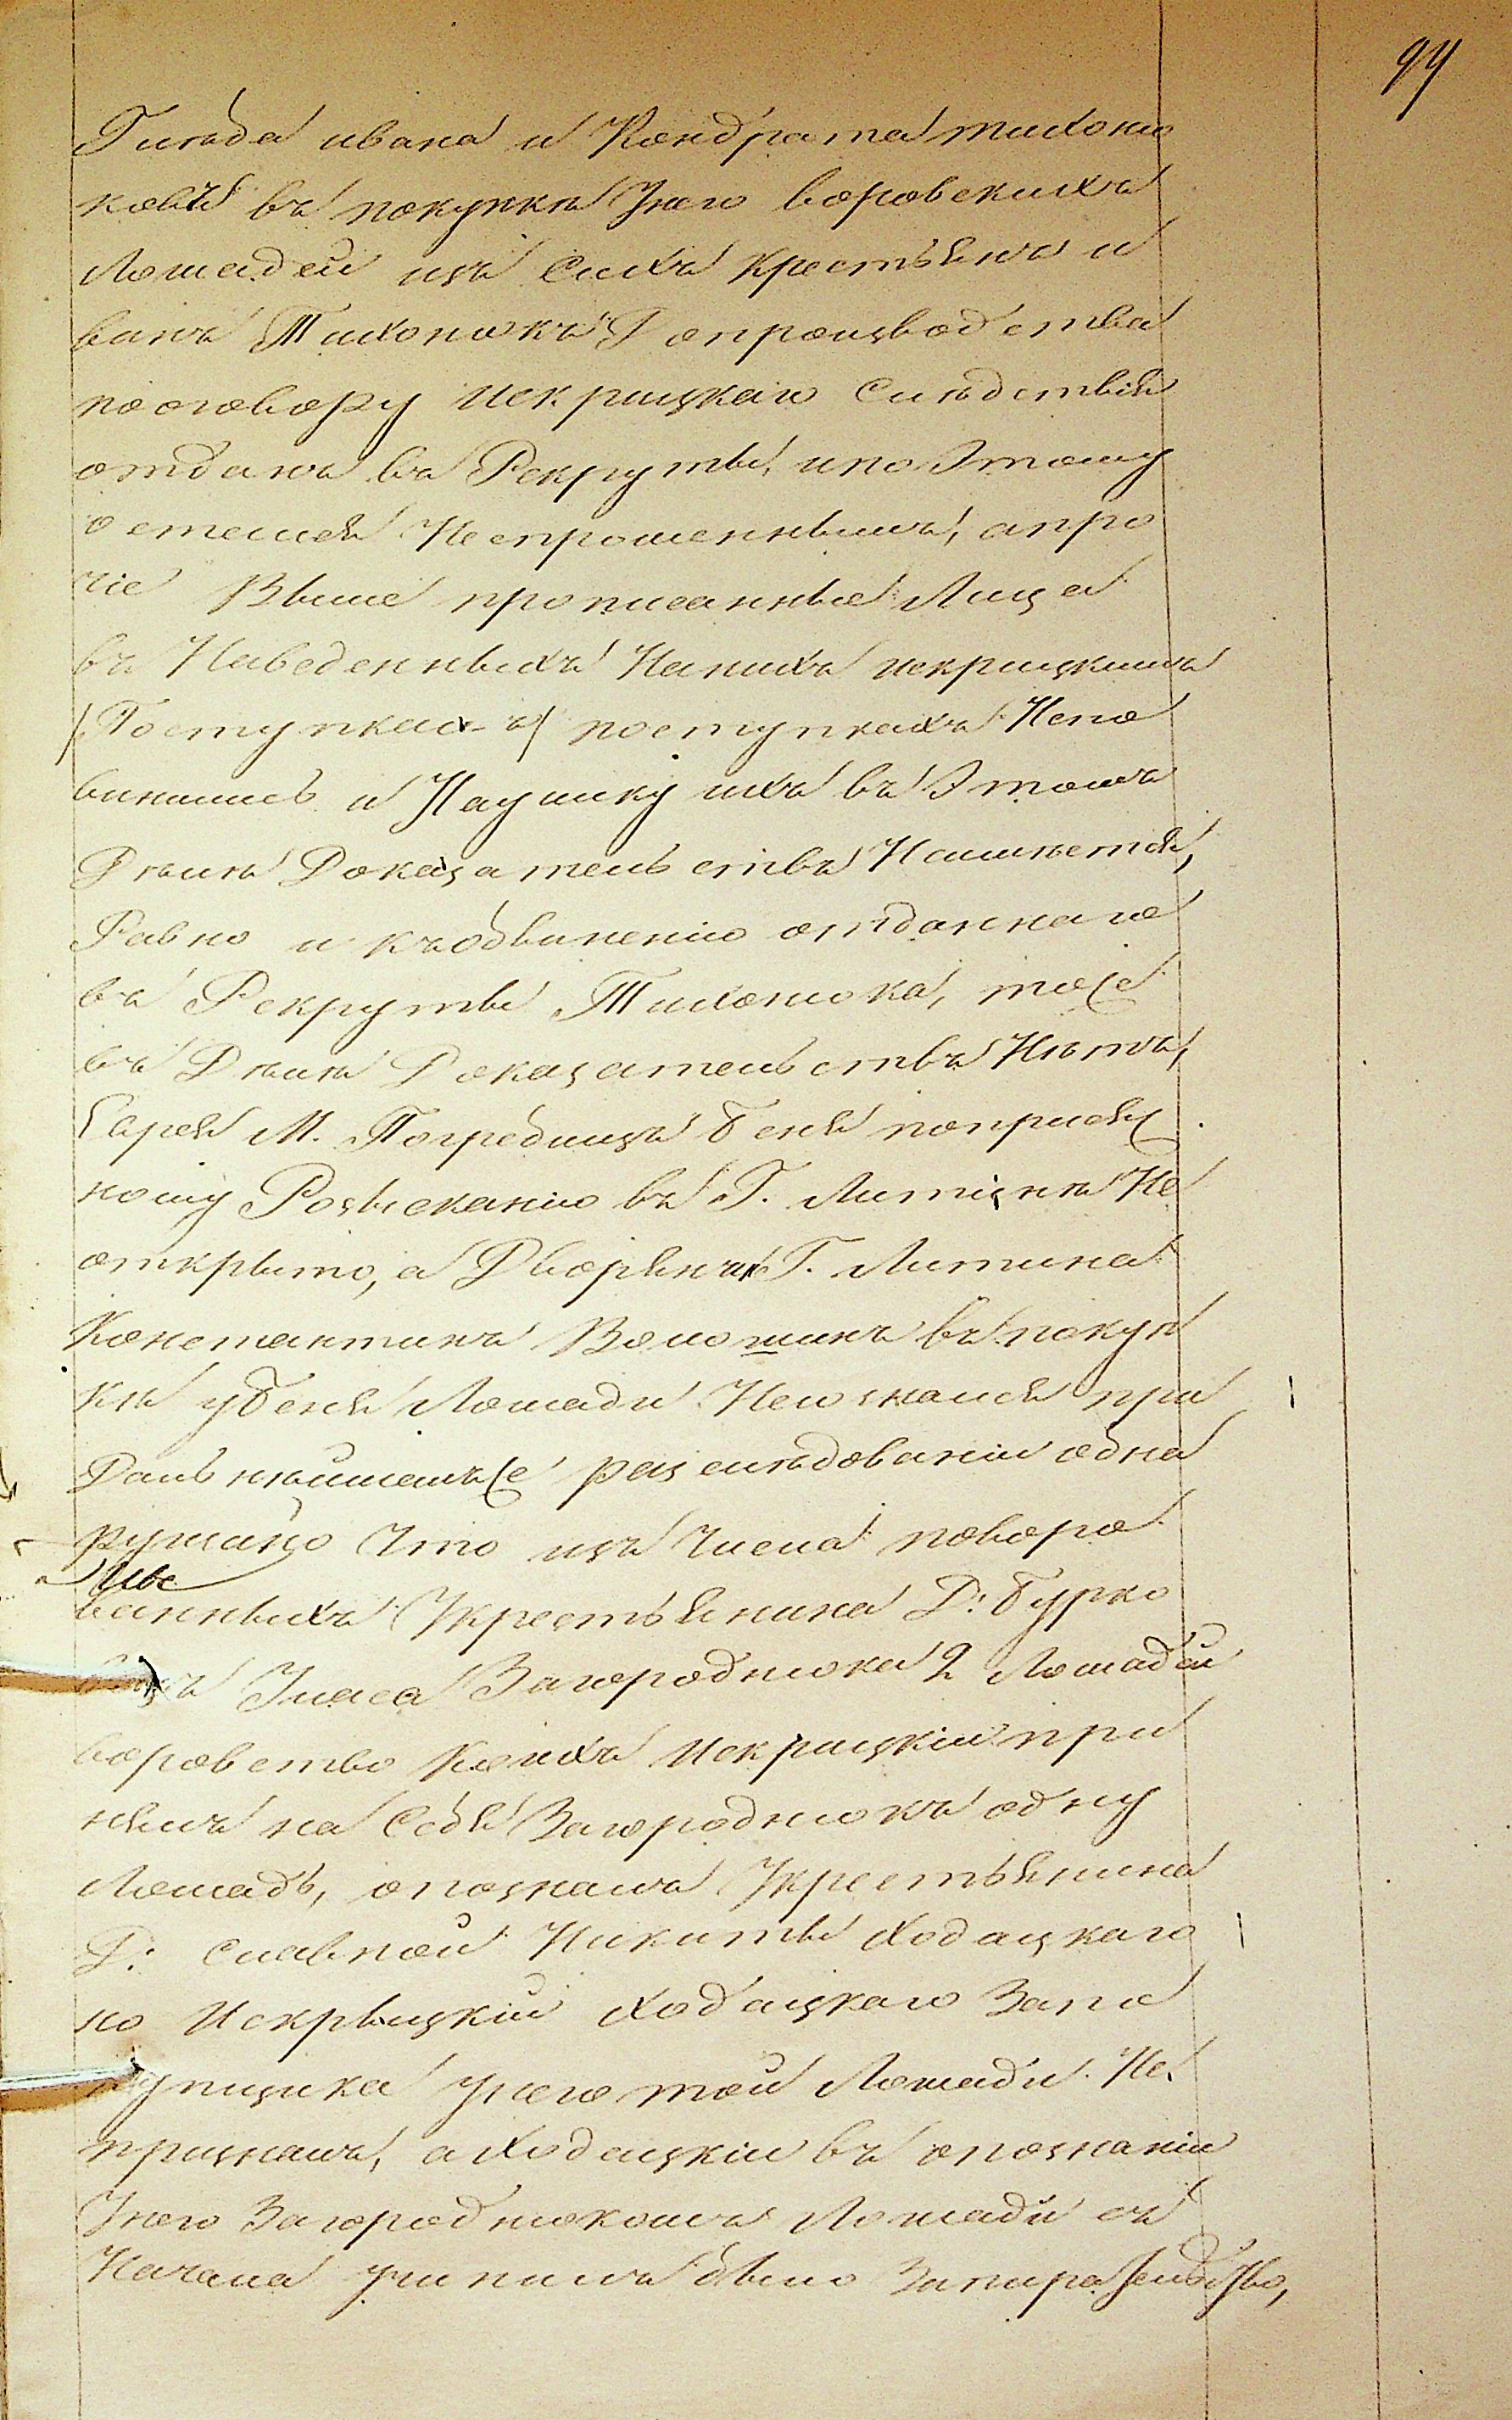 94
Гнѣда ивана и Кондрата тихоню
ковъ въ покупкѣ Унего воровскихъ
Лошадей изъ Сихъ Крестьянъ и
ванъ Тихонюкъ Допроизводства
по оговору Искрицкаго Слѣдствія
отданъ въ Рекруты, и по Этому
остался Неспрошеннымъ, апро
чіе Выше прописанные Лица
въ Наведенныхъ Нанихъ искрицкимъ
/Поступкахъ/ поступкахъ Непо
винились и Науличку ихъ въ Этомъ
Дѣлѣ Доказательствъ Неимѣется,
Равно и къобвиненію отданнаго
въ Рекруты Тихонюка, тоже
въ Дѣлѣ Доказательствъ Нѣтъ,
Еврея М. Погребищъ Беня поприсяж
ному Розысканію въ Г. Литинѣ Не
открыто, а Дворянинъ Г. Литина
Константинъ Волошинъ въ покуп
кѣ уБеня Лошади Несознался при
Дальнѣйшемъже разслѣдованіи обна
ружено Что изъ Числа повора
ванныхъ Укрестьянина Д: Бурко
вецъ Уласа Загороднюка 2 Лошадей
воровство Коихъ Искрицкій при
нялъ на Себя Загороднюкъ одну
Лошадь, опозналъ Укрестьянина
Д: Славной Никиты Ходацкаго
но Искрыцкій Ходацкаго Запо
купщика Унего той Лошади Не
призналъ, а Ходацкій въ опознаніи
Унего Загороднюкомъ Лошади съ
Начала Учинилъ было Запирательство,